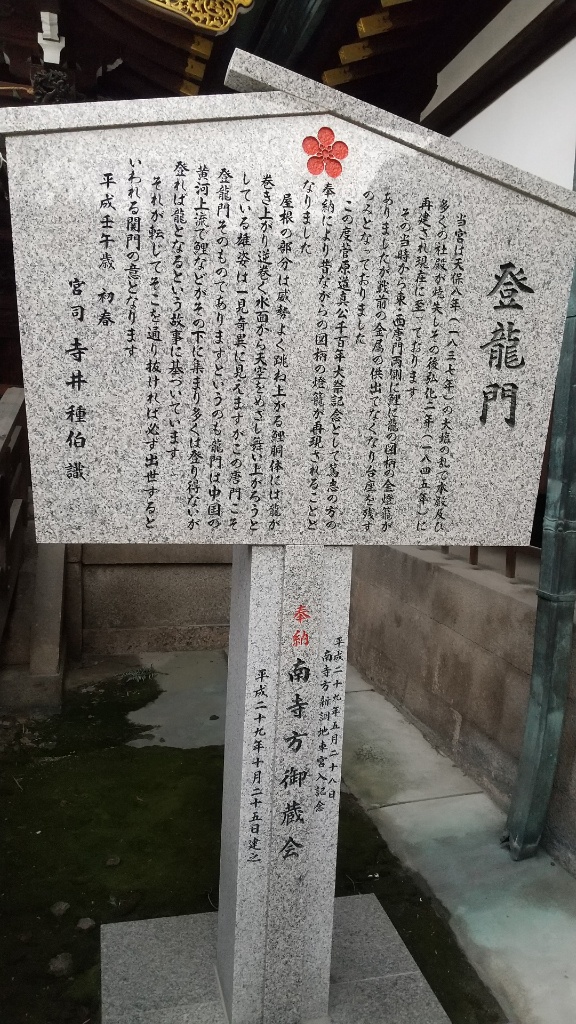 登龍門
当宮は天保八年（一八三七年）の大塩の乱で本殿及び
多くの社殿が焼失しその後弘化二年（一八四五年）に
再建され現在に至っております
その当時から東・西唐門両側に鯉に龍の図柄の金燈籠が
ありましたが戦前の金属の供出でなくなり台座を残す
のみとなっておりました
この度菅原道真公千百年大祭記念として篤志の方の
奉納により昔ながらの図柄の燈籠が再現されることと
なりました
屋根の部分は威勢よく跳ね上がる鯉胴体には龍が
巻き上がり逆巻く水面から天空をめざし舞い上がろうと
している雄姿は一見奇異に見えますがこの唐門こそ
登龍門そのものでありますというのも龍門は中国の
黄河上流で鯉などがその下に集まり多くは登り得ないが
登れば龍となるという故事に基づいています
それが転じてそこを通り抜ければ必ず出世すると
いわれる関門の意となります
平成壬午歳 初春
宮司 寺井種伯 識
平成二十九年五月二十八日
南寺方新調地車宮入記念
奉納 南寺方御蔵会
平成二十九年十月二十五日建之